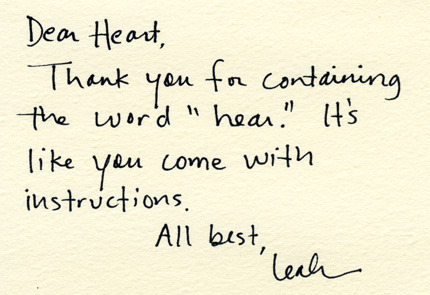 Dear Heart,
Thank you for containing
the word "hear." It's
like you come with
instructions.
All best,
Leah